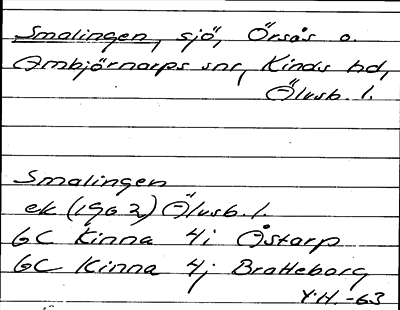 Smalingen, sjö, Örsås o.
Ambjörnarps snr, Kinds hd,
Älvsb. l.
Smalingen
ek (1962) Älvsb. l.
6C Kinna 4i Åstarp
6C Kinna 4j Bratteborg
Y.H. -63